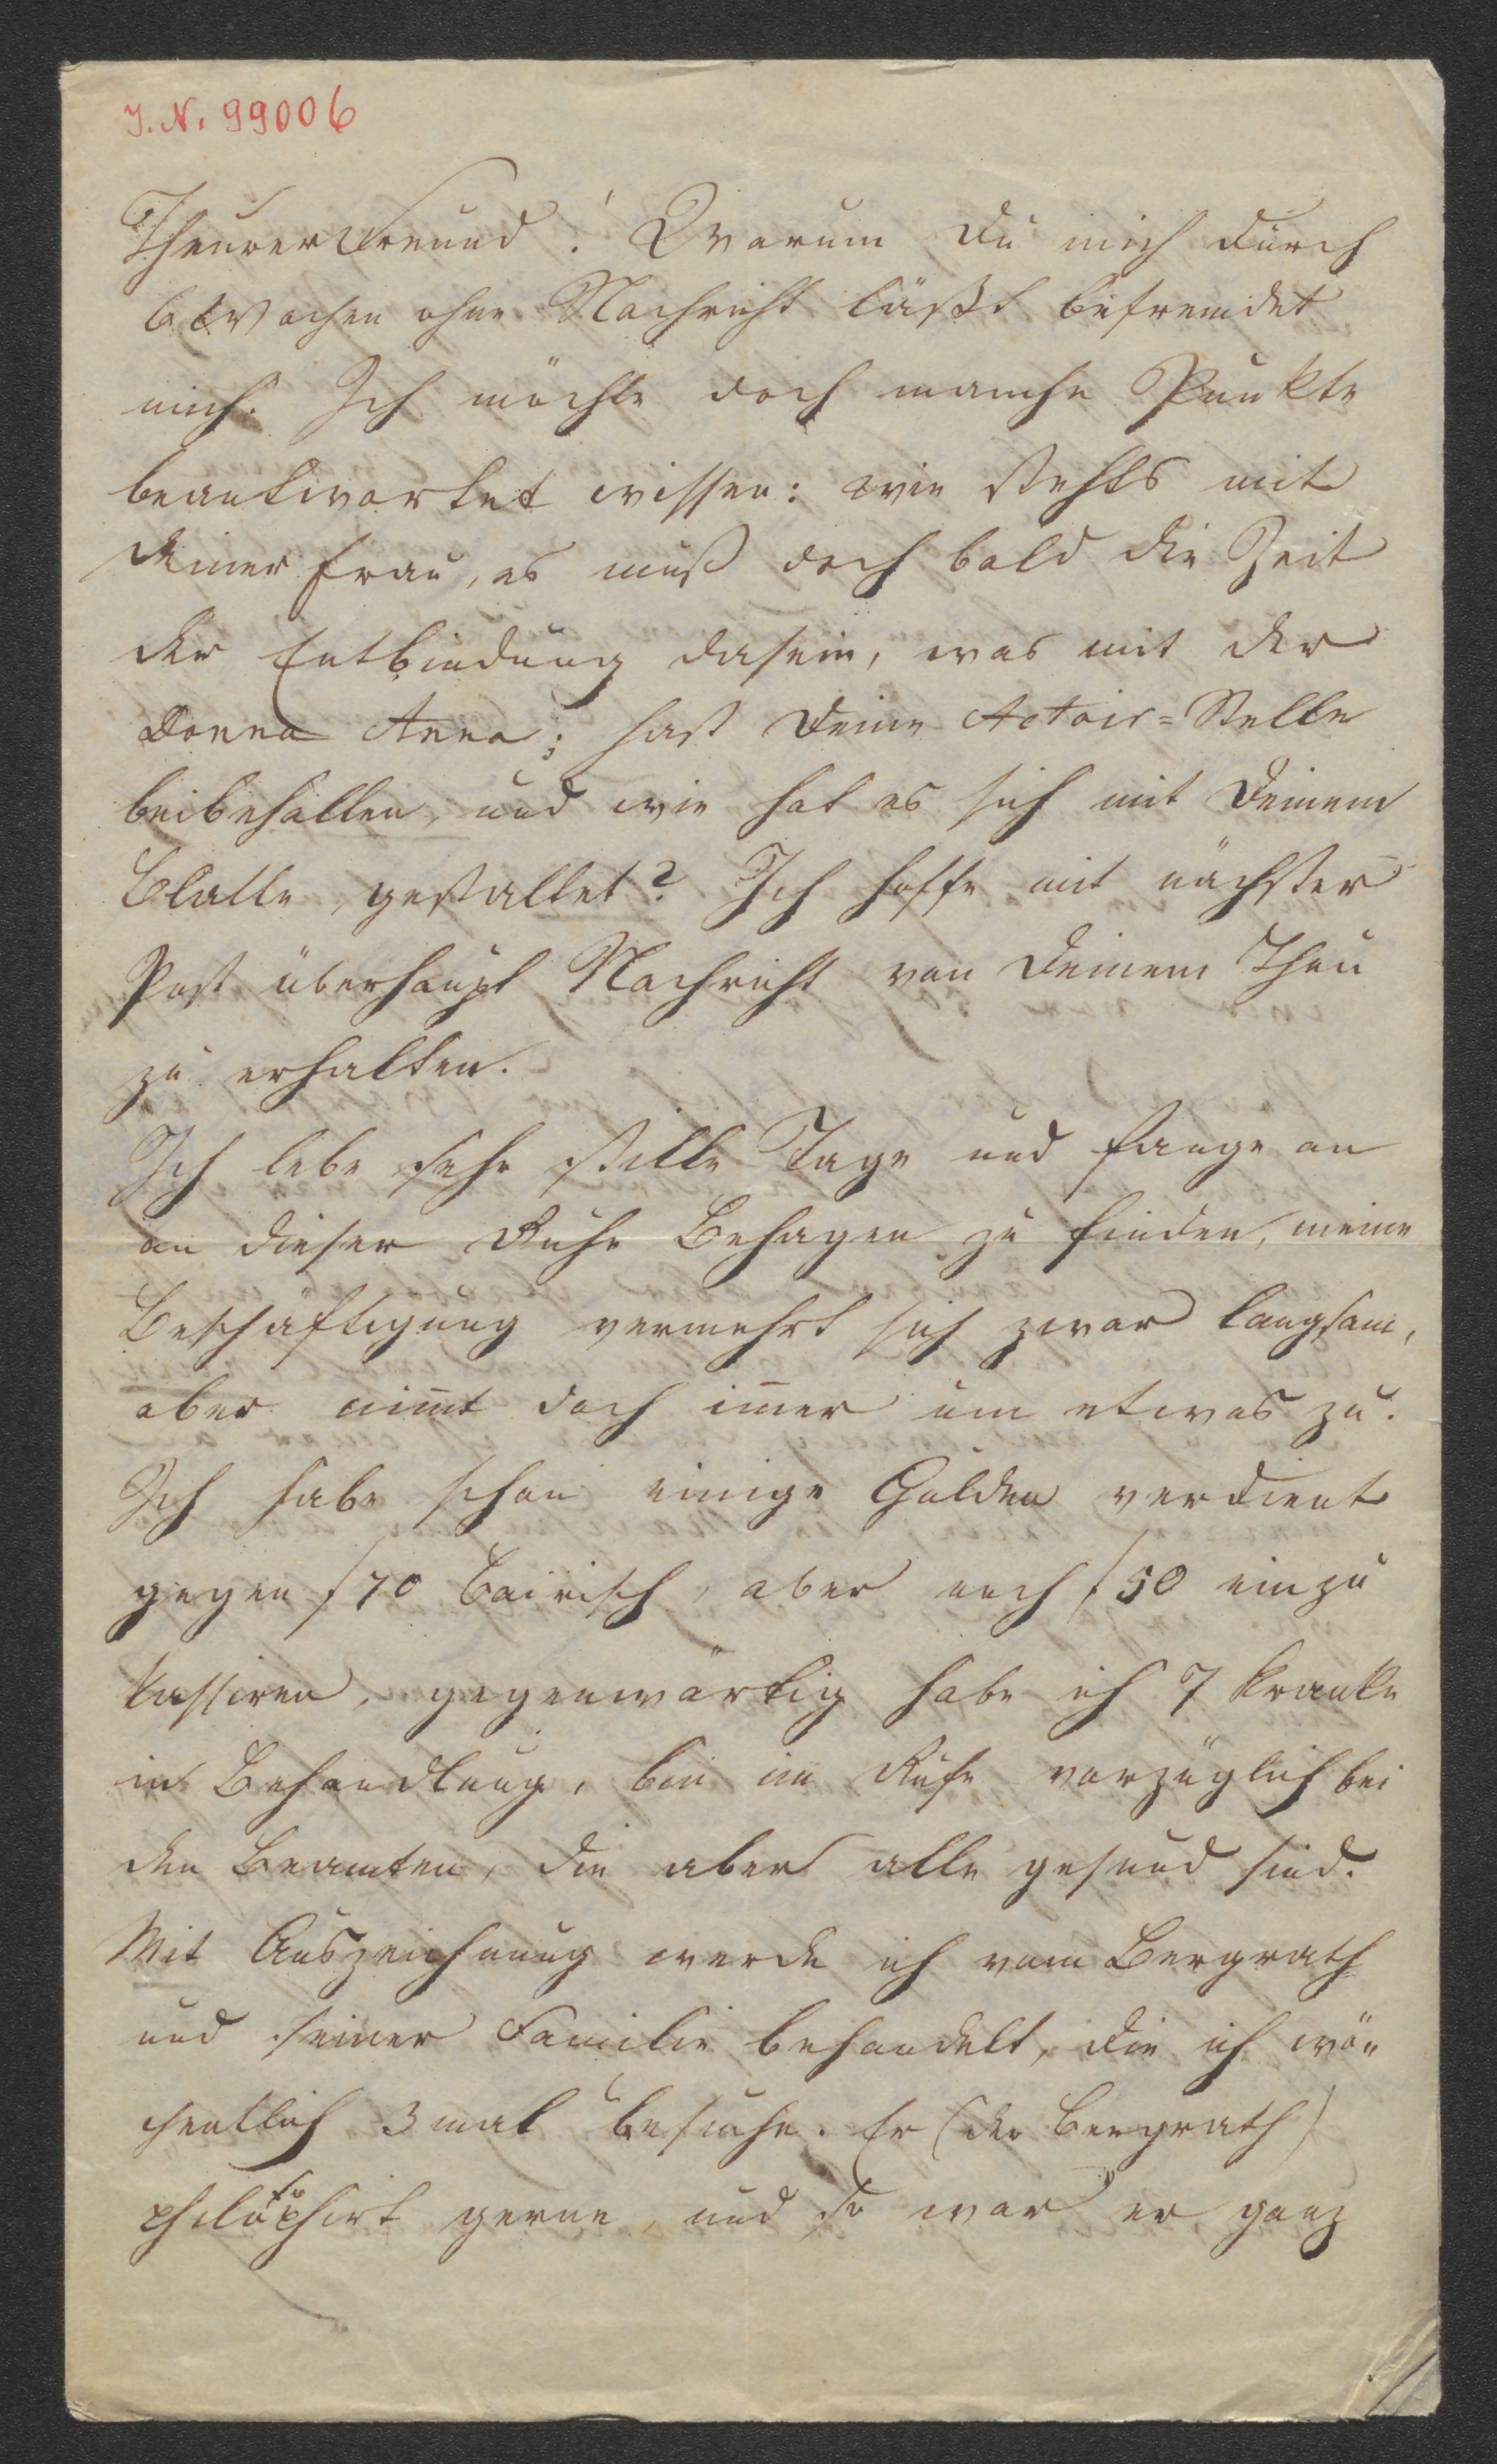 J. N. 99006
Theurer Freund! Warum Du mich durch
6 Wochen ohne Nachricht läßt befremdet
mich. Ich möchte doch manche Punkte
beantwortet wissen: wie stehts mit
Deiner Frau, es muß doch bald die Zeit
der Entbindung dasein, was mit der
Donna Anna; hast Deine Actair=Stelle
beibehalten, und wie hat es sich mit Deinem
Blatte gestaltet? Ich hoffe mit nächster
Post überhaupt Nachricht von Deinem Thun
zu erhalten.
Ich lebe sehr stille Tage und fange an
an dieser Ruhe Behagen zu finden, meine
Beschäftigung vermehrt sich zwar langsam,
aber nim̅t doch im̅er um etwas zu.
Ich habe schon einige Gulden verdient
gegen f 70 bairisch, aber noch f 50 einzu
kassiren, gegenwärtig habe ich 7 Kranke
in Behandlung, bin im Rufe vorzüglich bei
den Beamten, die aber alle gesund sind.
Mit Auszeichnung werde ich vom Bergrath
und seiner Familie behandelt, die ich wö„
chentlich 3 mal besuche. Er (der Bergrath)
philosophirt gerne, und so war er ganz